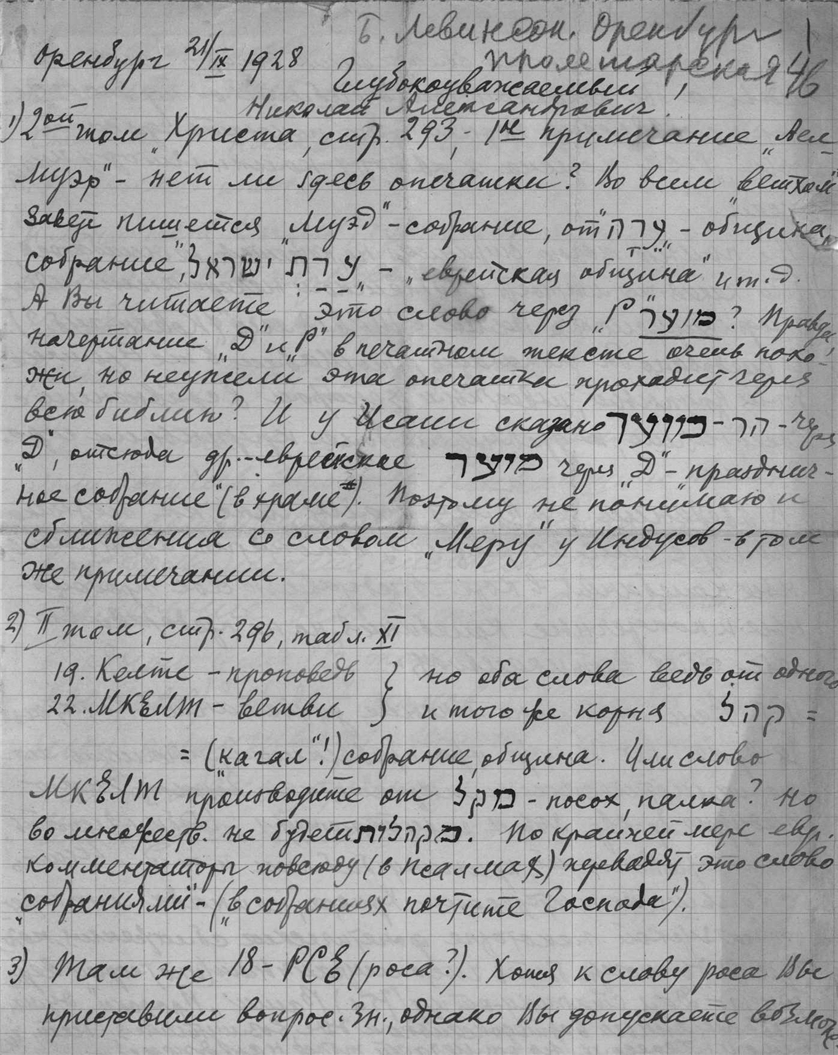 Б. Левинсон. Оренбург
Пролетарская 46
Оренбург 21/IX 1928
Глубокоуважаемый,
Николай Александрович.
1) 2ой том „Христа, стр. 293, - 1я примечание „Аел-
Муэр" - нет ли здесь опечатки? Во всем „ветхом"
завете пишется „Муэд" - собрание, от „ערה" - „община,
собрание", ערת ישראל - „еврейская община" и т. д.
А Вы читаете это слово через „Р" מוער? Правда
начертание „Д" и „Р" в печатном тексте очень похо-
жи, но неужели эта опечатка проходит через
всю библию? И у Исаии сказано הר - מועד - через
„Д", отсюда др.-еврейское מועד через „Д" - празднич-
ное собрание" (в храме). Поэтому не понимаю и
сближения со словом „Меру" у Индусов - в том
же примечании.
2) II том, стр. 296, табл. XI
19. Келте - проповедь } но оба слова ведь от одного
22. МКЕЛТ - ветви } и того же корня קהל =
= („кагал"!) собрание, община. Или слово
МКЕЛТ производите от מקל - посох, палка? Но
во множеств. не будет מקהלית. По крайней мере евр.
комментаторы повсюду (в Псалмах) переводят это слово
„собраниями" - („в собраниях почтите Господа").
3) Там же 18 - РСЕ (роса?). Хотя к слову роса Вы
приставили вопрос. зн., однако Вы допускаете возмож-